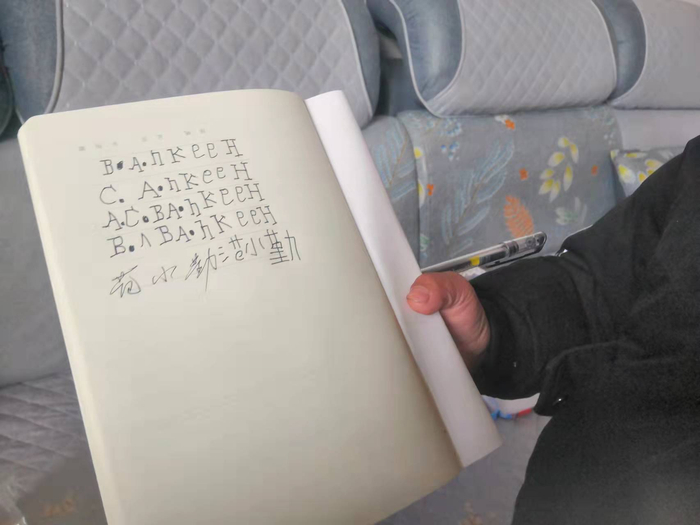 B. A. ҺKeeH
C. A. ҺKeeH
A.C. BA. ҺKeeH
B. Λ BA. ҺKeeH
范小勤 范小勤